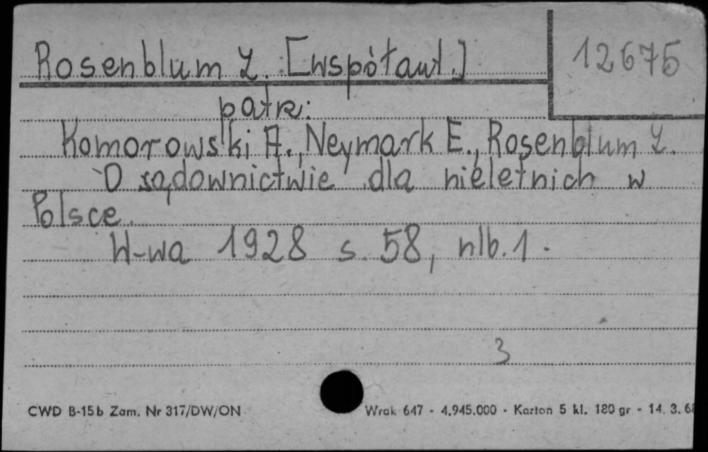 Rosenblum L. [współaut.]
12675
patrz:
Komorowski A., Neymark E., Rosenblum L.
O sądownictwie dla nieletnich w
Polsce.
W-wa 1928 s. 58, nlb. 1.
3
CWD B-15b Zam. Nr 317/DW/ON
Wrak 647 - 4.945.000 - Karton 5 kl. 180 gr - 14. 3. 6